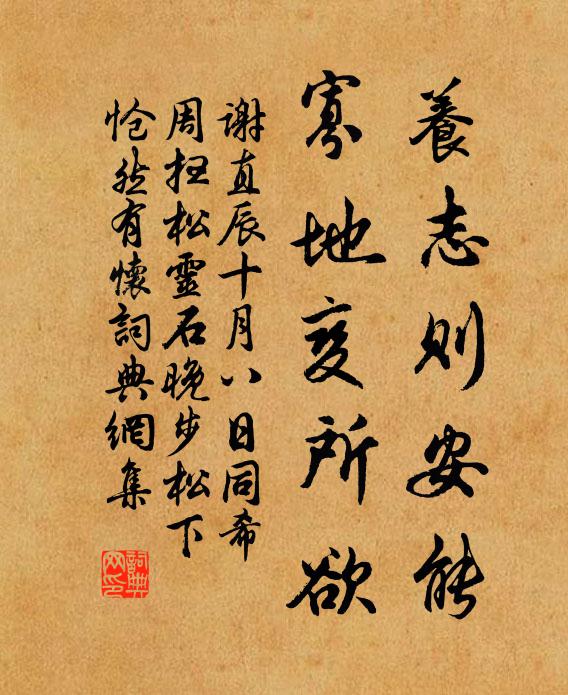 養志則安能
寥地变所欲
謝直辰十月八日同希
周扫松靈石晚步松下
怆然有懷詞典網集
詞典网印